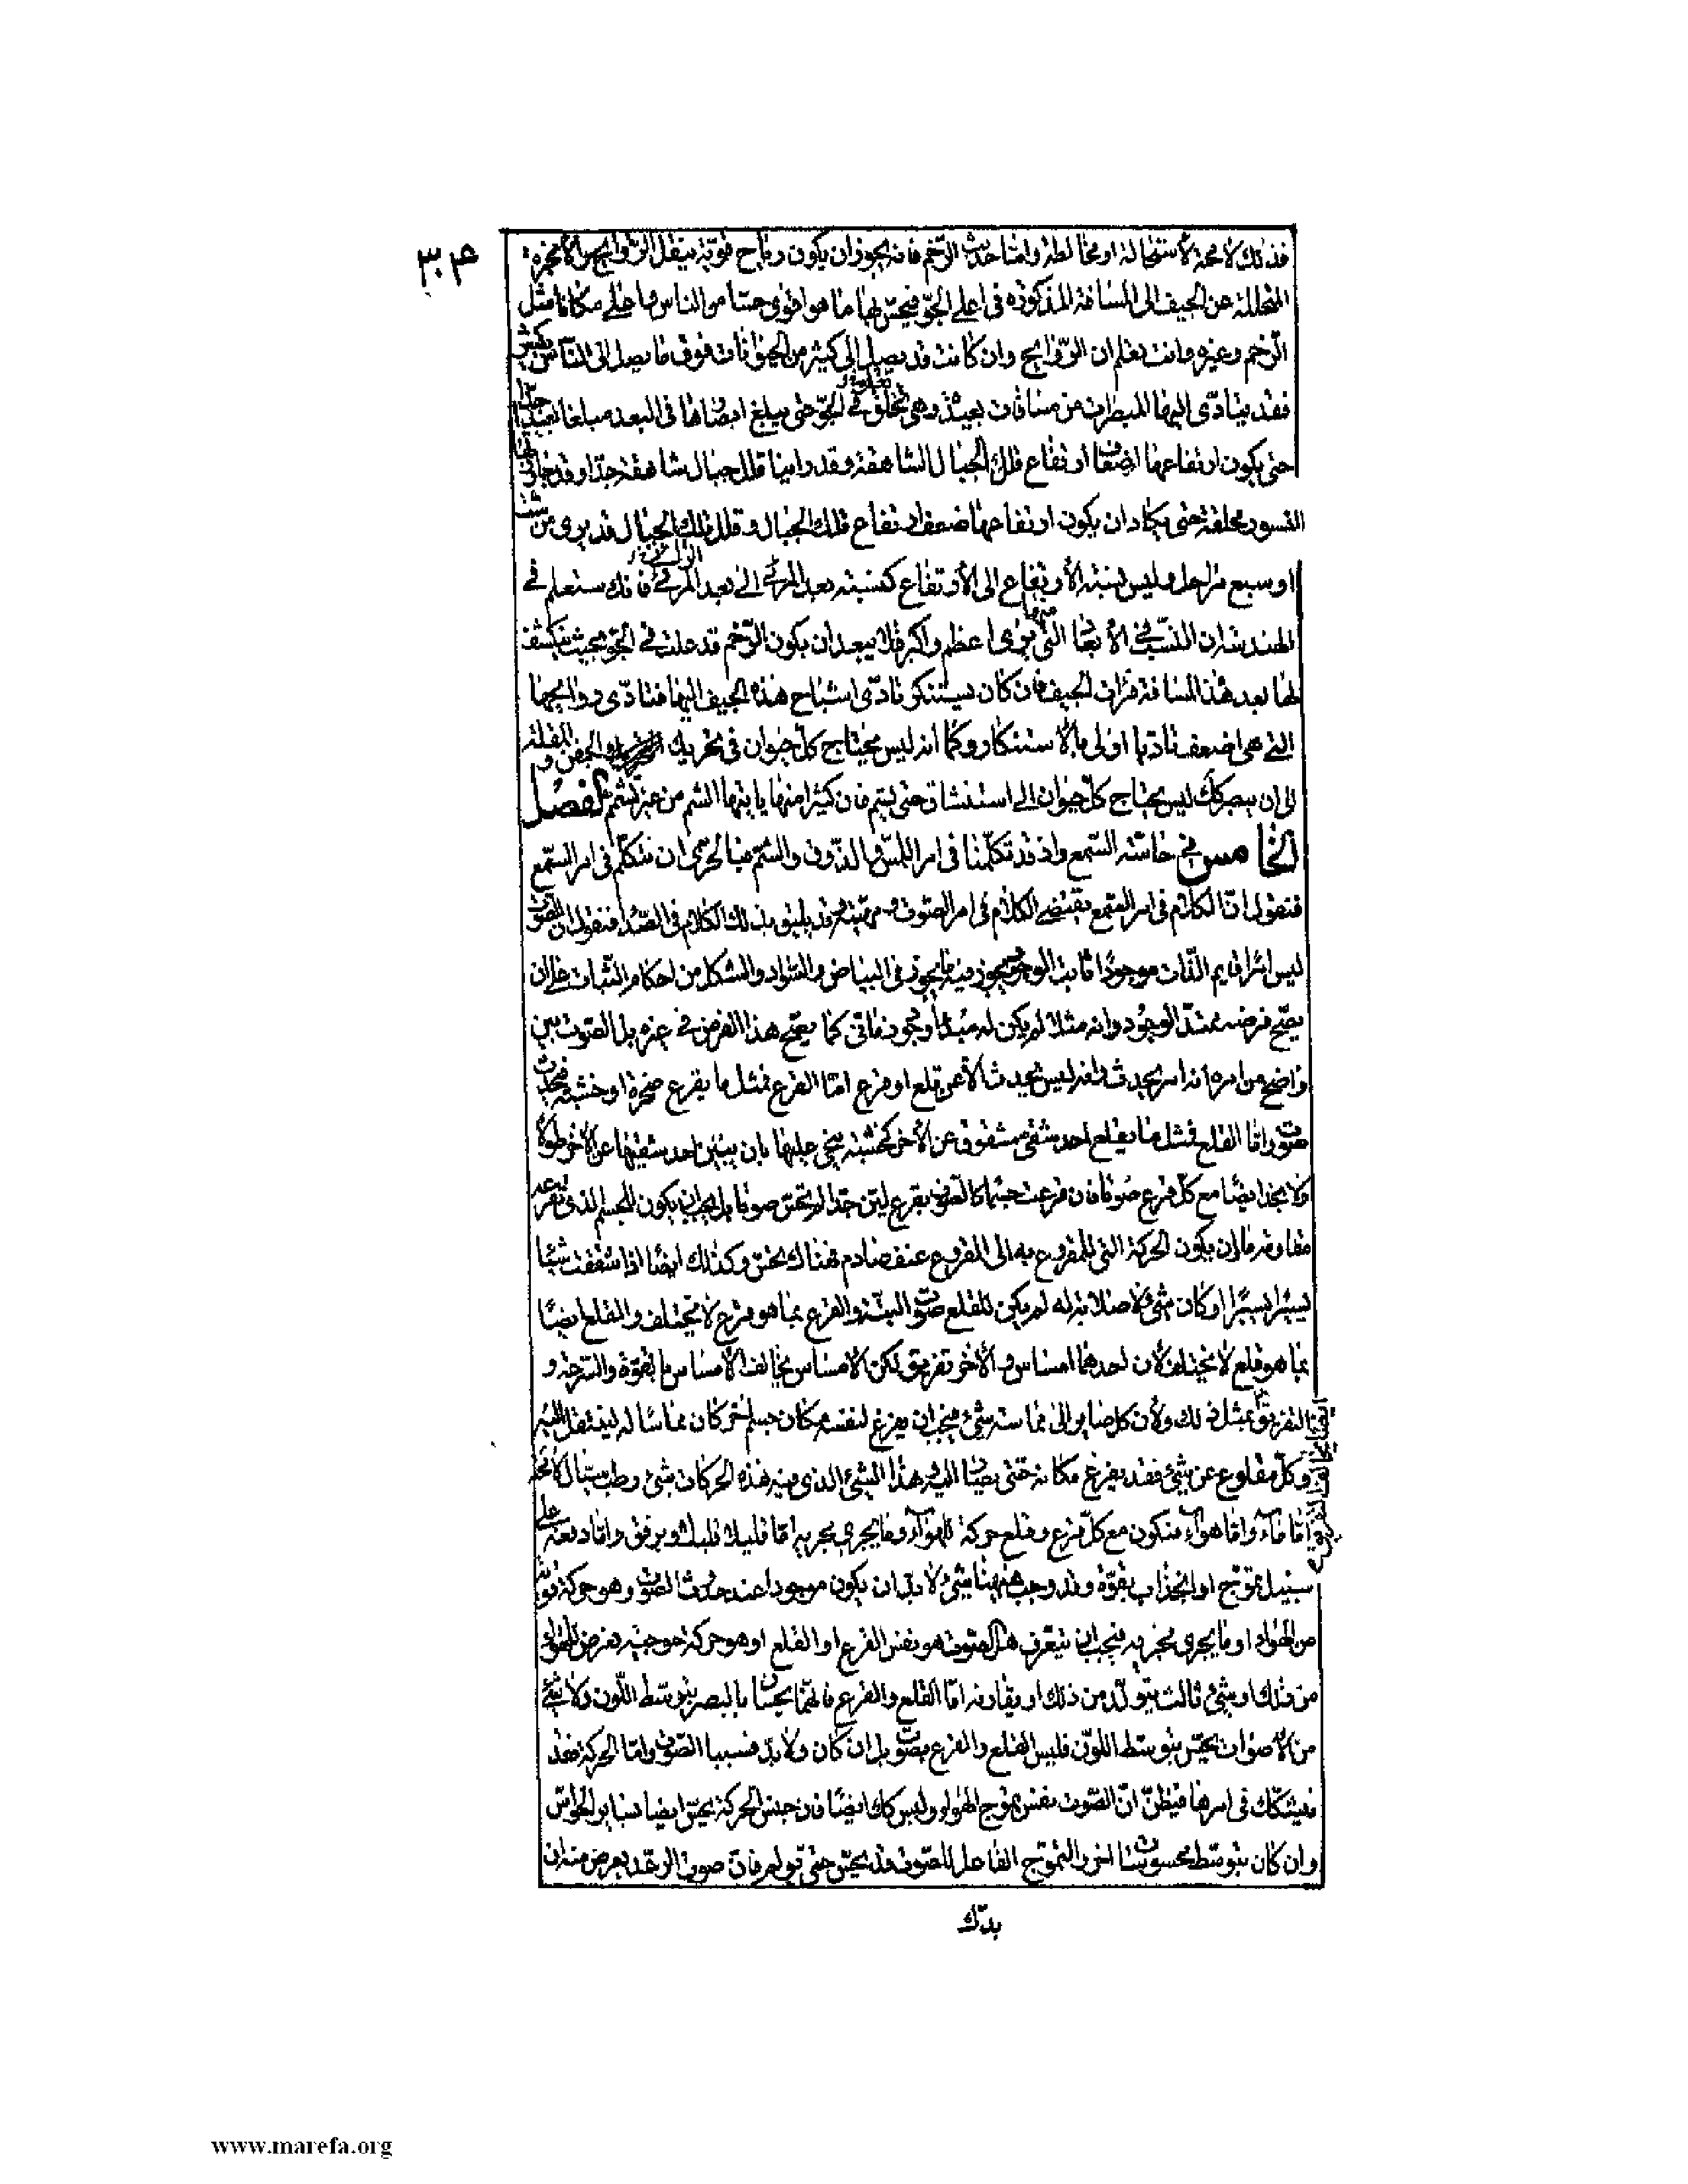 ٣٠٤
فذلك لا محة لاستحالة او مخالطة واما حديث الرخم فانه يجوز ان يكون رياح قوية ينقل الروايح من الابخرة
المتحللة عن الجيف الى المسافة المذكورة فى اعلى الجو فيحس بها ما هو اقوى حسا من الناس واعلى مكانا مثل
الرخم وغيره وانت تعلم ان الروايح وان كانت قد يصل الى كثير من الحيوانات فوق ما يصل الى الناس بكثير
فقد يتادى اليها المبصرات من مسافات بعيدة وهى تحلق فى الجو حتى يبلغ ابصارها فى البعد مبلغا بعيدا جدا
حتى يكون ارتفاعها اضعاف ارتفاع قلل الجبال الشاهقة وقد راينا قلل جبال شاهقة جدا وقد جاوزتها
النسور محلقة حتى يكاد ان يكون ارتفاعها ضعف ارتفاع تلك الجبال وقلل تلك الجبال قد يرى من ست
او سبع مراحل وليس نسبة الارتفاع الى الارتفاع كنسبة بعد المرئى الى بعد المرئى فانك ستعلم فى
الهندسة ان النسب فى الابعاد التى يرى منها اعظم واكبر فلا يبعد ان يكون الرخم قد علت فى الجو بحيث ينكشف
لها بعد هذا المسافة فرات الجيف فان كان يستنكر تادى اشباح هذه الجيف اليها فتادى روايحها
التى هى اضعف تاديا اولى بالاستنكار وكما انه ليس يحتاج كل حيوان فى تحريك الجفن والمقلة
الى ان يبصر كك ليس يحتاج كل حيوان الى استنشاق حتى يشم فان كثيرا منها ياتيها الشم من غير تشمم الفصل
الخامس فى حاسة السمع واذ قد تكلمنا فى امر اللمس والذوق والشم فبالحرى ان نتكلم فى امر السمع
فنقول ان الكلام فى امر السمع يقتضى الكلام فى امر الصوت ومهيته وقد يليق بذلك الكلام فى الصدا فنقول ان الصوت
ليس امرا قايم الذات موجودا ثابت الوجود يجوز فيه ما يجوز فى البياض والسواد والشكل من احكام الثبات على ان
يصح فرضه ممتد الوجود وانه مثلا لم يكن له مبدأ وجود زمانى كما يصح هذا الفرض فى غيره بل الصوت بين
واضح من امره انه امر يحدث وانه ليس يحدث الا عن قلع او قرع اما القرع فمثل ما يقرع صخرة او خشبة فيحدث
صوت واما القلع فمثل ما يقلع احد شقى مشقوق عن الاخر كخشبة ينحى عليها بان يبين احد شقيها عن الاخر طولا
ولا نجد ايضا مع كل قرع صوتا فان قرعت جسما كالصوف بقرع لين جدا لم تحس صوتا بل يجب ان يكون للجسم الذى تقرعه
مقاومة ما وان يكون الحركة التى للمقروع به الى المقروع عنف صادم فهناك يحس وكذلك ايضا اذا شققت شيئا
يسيرا يسيرا او كان شئ لا صلابة له لم يكن للقلع صوت البتة والقرع بما هو قرع لا يختلف والقلع ايضا
بما هو قلع لا يختلف لان احدهما امساس والاخر تفريق لكن الامساس يخالف الامساس بالقوة والسرعة و
التفريق بمثل ذلك ولان كل صاير الى مماسة شئ فيجب ان يفرغ لنفسه مكان جسم اخر كان مماسا له لينتقل اليه
وكل مقلوع عن شئ فقد يفرغ مكانه حتى يصار اليه وهذا الشئ الذى فيه هذه الحركات شئ رطب سيال لا محة
اما ماء واما هواء فتكون مع كل قرع وقلع حركة للهواء وما يجرى مجريه اما قليلا قليلا وبرفق واما دفعة على
سبيل تموج او انجذاب بقوة وقد وجب ههنا شئ لا بد ان يكون موجودا عند حدوث الصوت وهو حركة قوية
من الهواء او ما يجرى مجريه فيجب ان يتعرف هل الصوت هو نفس القرع او القلع او هو حركة موجية يعرض للهواء
من ذلك او شئ ثالث يتولد من ذلك او يقارنه اما القلع والقرع فانهما يحسان بالبصر بتوسط اللون ولا شئ
من الاصوات يحس بتوسط اللون فليس القلع والقرع بصوت بل ان كان ولا بد فسببا الصوت واما الحركة فقد
فيشكك فى امرها فيظن ان الصوت نفس تموج الهواء وليس كك ايضا فان جنس الحركة يحس ايضا بساير الحواس
وان كان بتوسط محسوسات اخر والتموج الفاعل للصوت قد يحس حتى يولم فان صوت الرعد يعرض منه ان
يدك
www.marefa.org